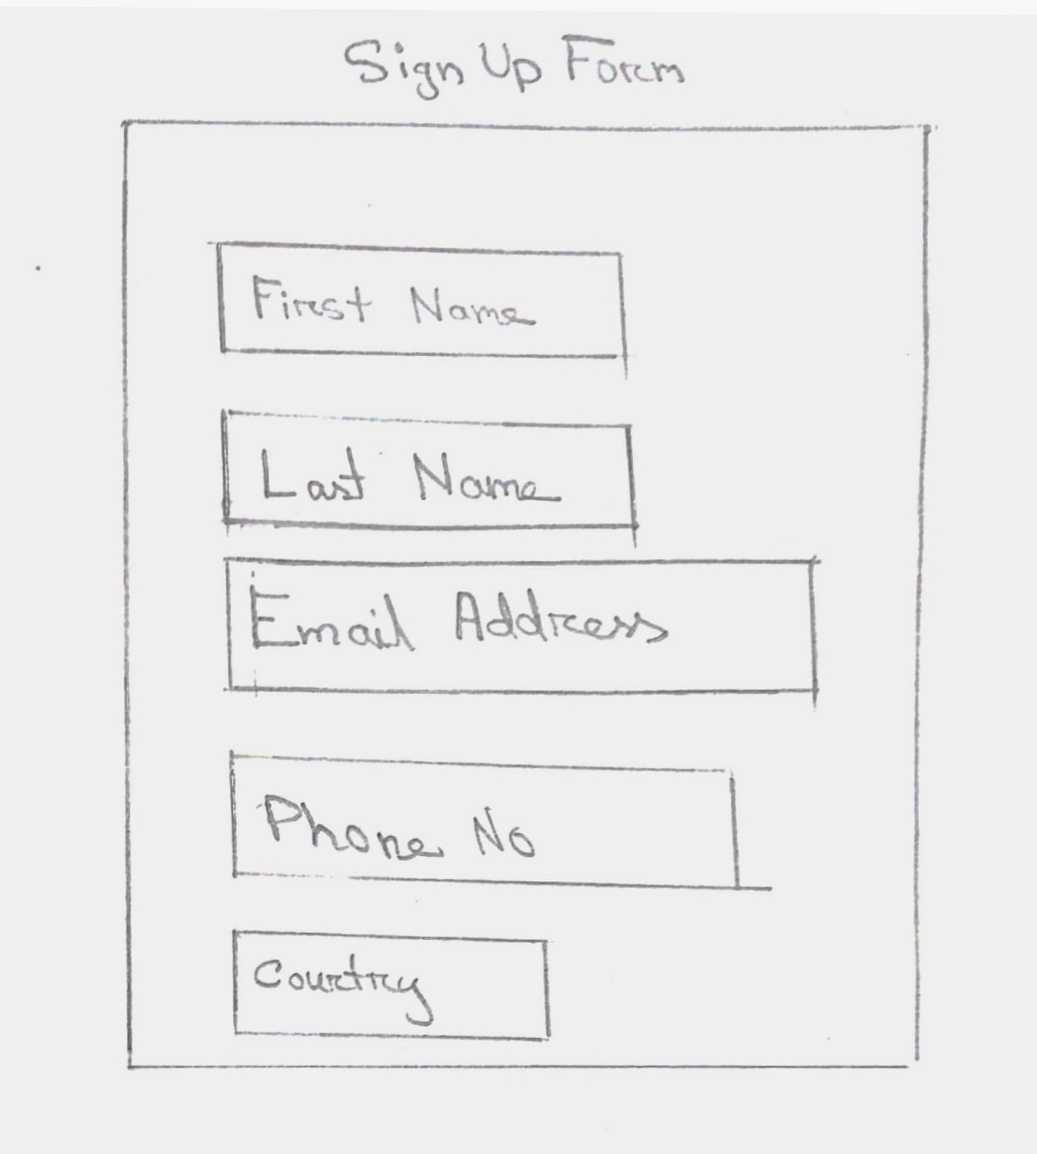 Sign Up Form
First Name
Last Name
Email Address
Phone No
Courtry